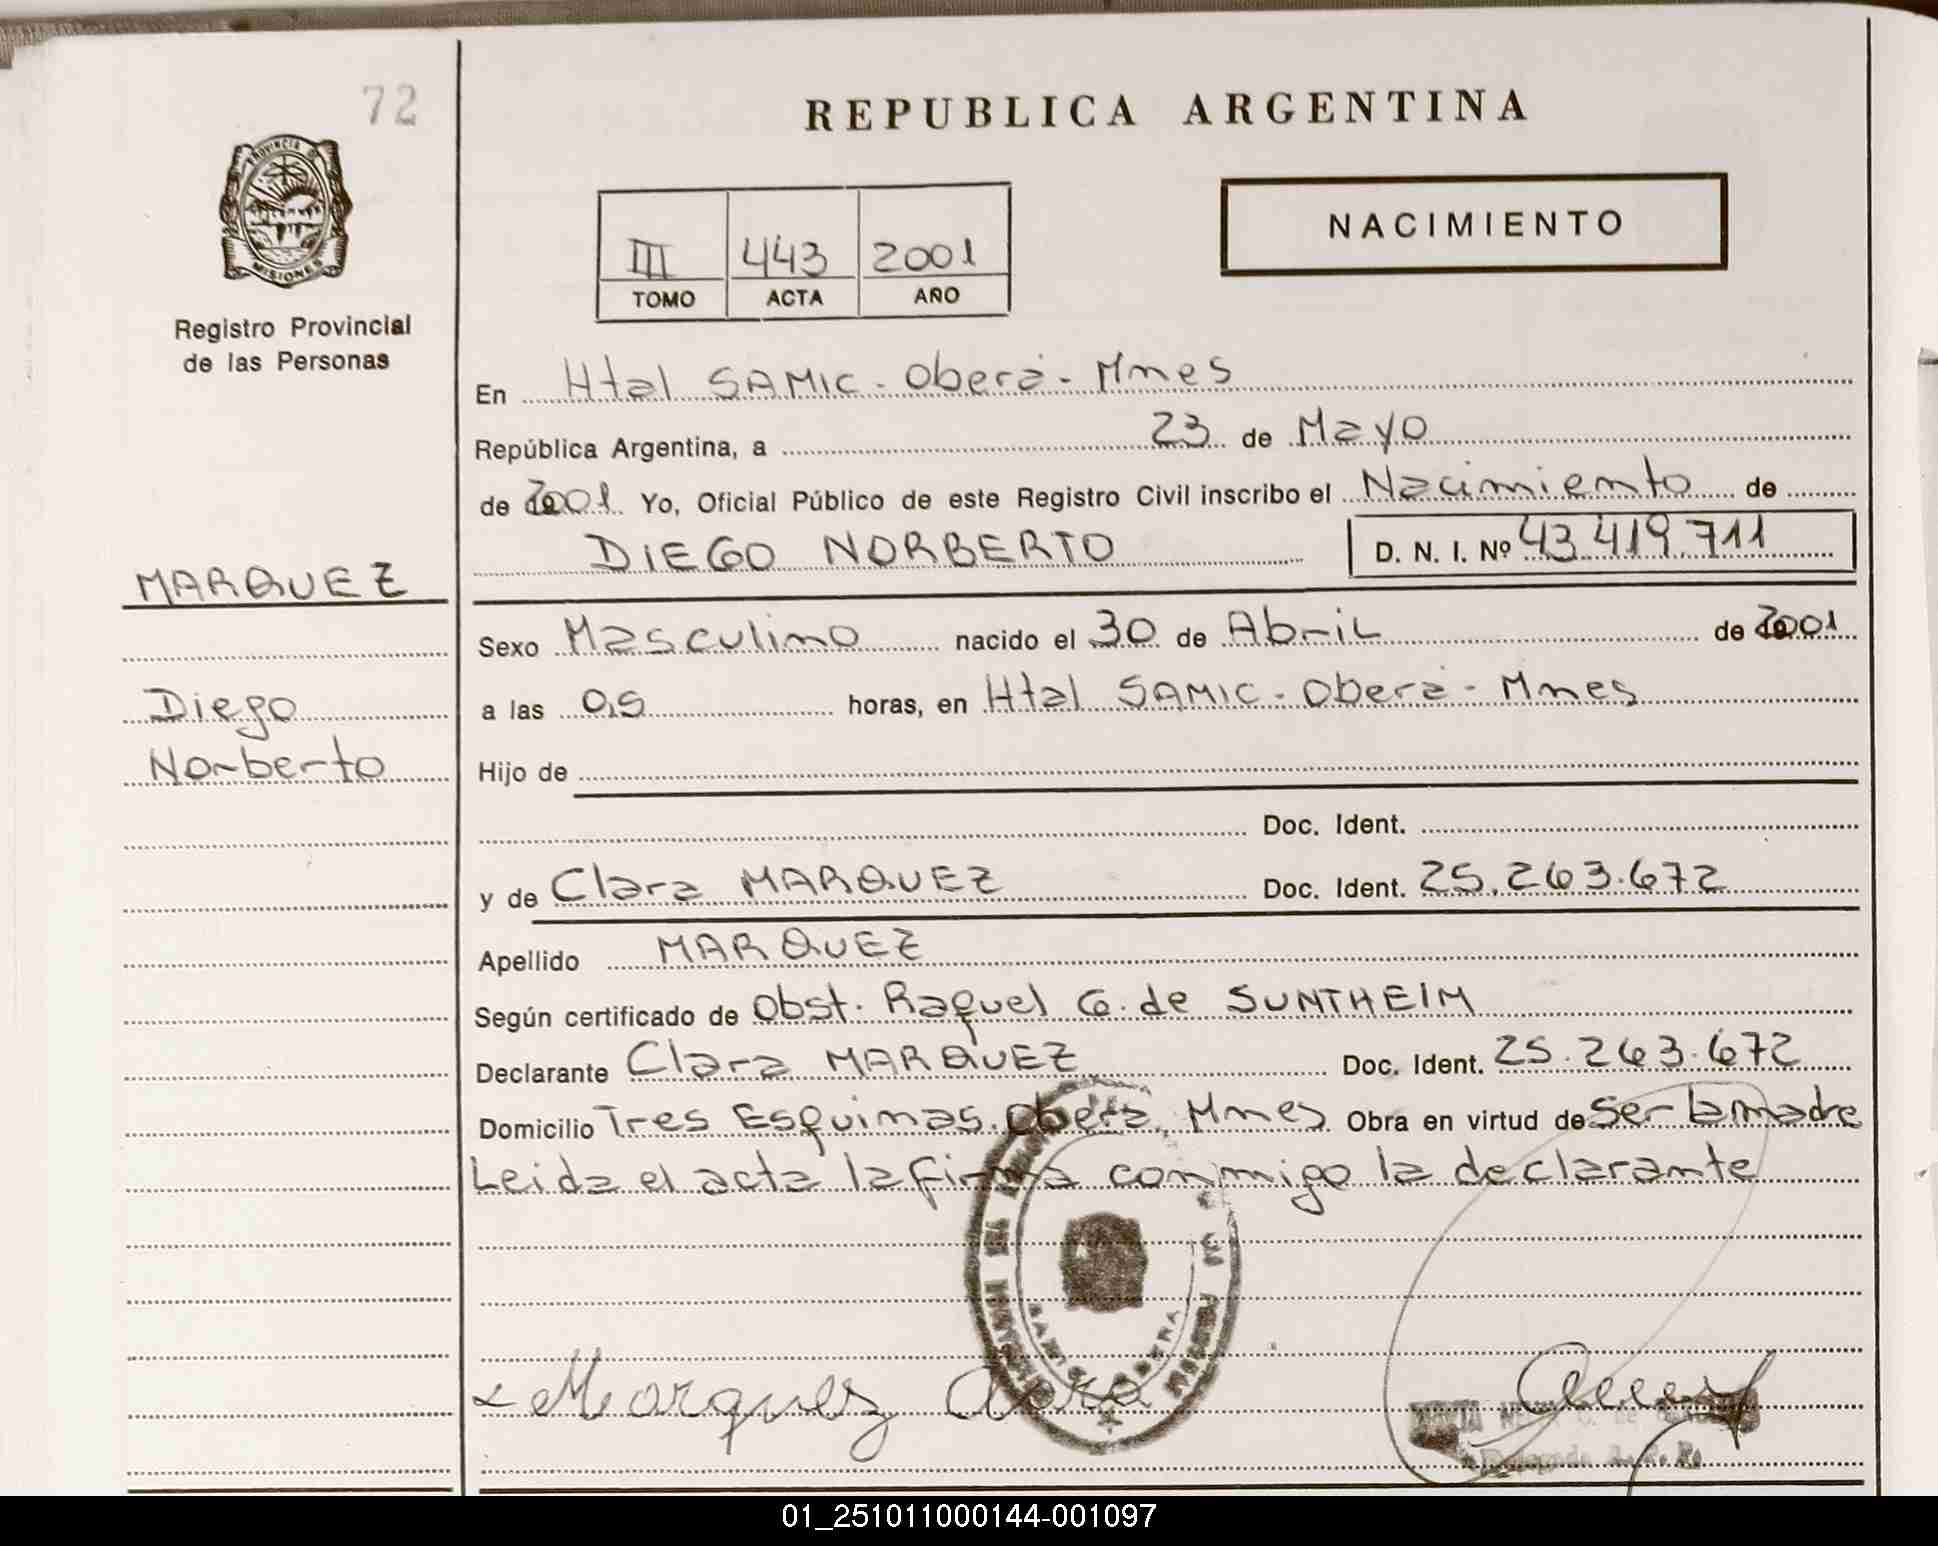 72
REPUBLICA ARGENTINA
PROVINCIA D
MISIONES
Registro Provincial
de las Personas
III 443 2001
TOMO ACTA AÑO
NACIMIENTO
En Htal SAMIC - Oberá - Mnes
República Argentina, a 23 de Mayo
de 2001 Yo, Oficial Público de este Registro Civil inscribo el Nacimiento de
DIEGO NORBERTO D. N. I. Nº 43.419.711
MARQUEZ
Diego
Norberto
Sexo Masculino nacido el 30 de Abril de 2001
a las 0,5 horas, en Htal SAMIC - Oberá - Mnes
Hijo de
Doc. Ident.
y de Clara MARQUEZ Doc. Ident. 25.263.672
Apellido MARQUEZ
Según certificado de Obst. Raquel G. de SUNTHEIM
Declarante Clara MARQUEZ Doc. Ident. 25.263.672
Domicilio Tres Esquinas. Oberá, Mnes Obra en virtud de Ser la madre
Leida el acta la firma conmigo la declarante
Marquez Clara
Delegada
01_251011000144-001097